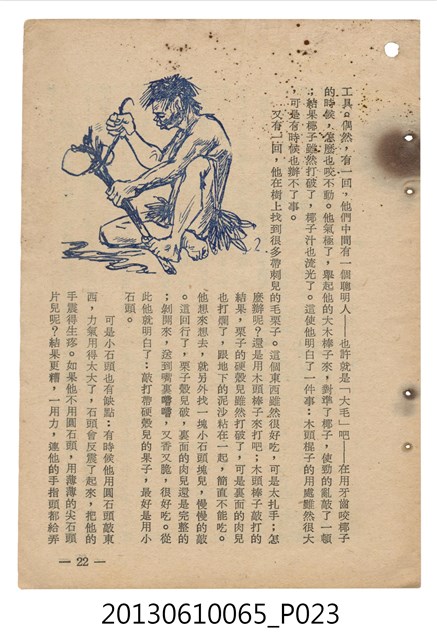 工具。偶然，有一回，他們中間有一個聰明人——也許就是「大毛」吧——在用牙齒咬椰子
的時候，怎麼也咬不動。他氣極了，舉起他的大木棒子來，對準了椰子，使勁的亂敲了一頓
；結果椰子雖然打破了，椰子汁也流光了。這使他明白了一件事：木頭棍子的用處雖然很大
，可是有時候也辦不了事。
又有一回，他在樹上找到很多帶刺兒的毛栗子。這個東西雖然很好吃，可是太扎手：怎
麼辦呢？還是用木頭棒子來打吧；木頭棒子敲打的
結果，栗子的硬殼兒雖然打破了，可是裏面的肉兒
也打爛了，跟地下的泥沙粘在一起，簡直不能吃。
他想來想去，就另外找一塊小石頭塊兒，慢慢的敲
。這回行了，栗子殼兒敲破，裏面的肉兒還是完整的
；剝開來，送到嘴裏嚼嚼，又香又脆，很好吃。從
此他就明白了：敲打帶硬殼兒的果子，最好是用小
石頭。
可是小石頭也有缺點：有時候他用圓石頭敲東
西，力氣用得太大了，石頭會反震了起來，把他的
手震得生疼。如果他不用圓石頭，用薄薄的尖石頭
片兒呢？結果更糟，一用力，連他的手指頭都給弄
— 22 —
20130610065_P023